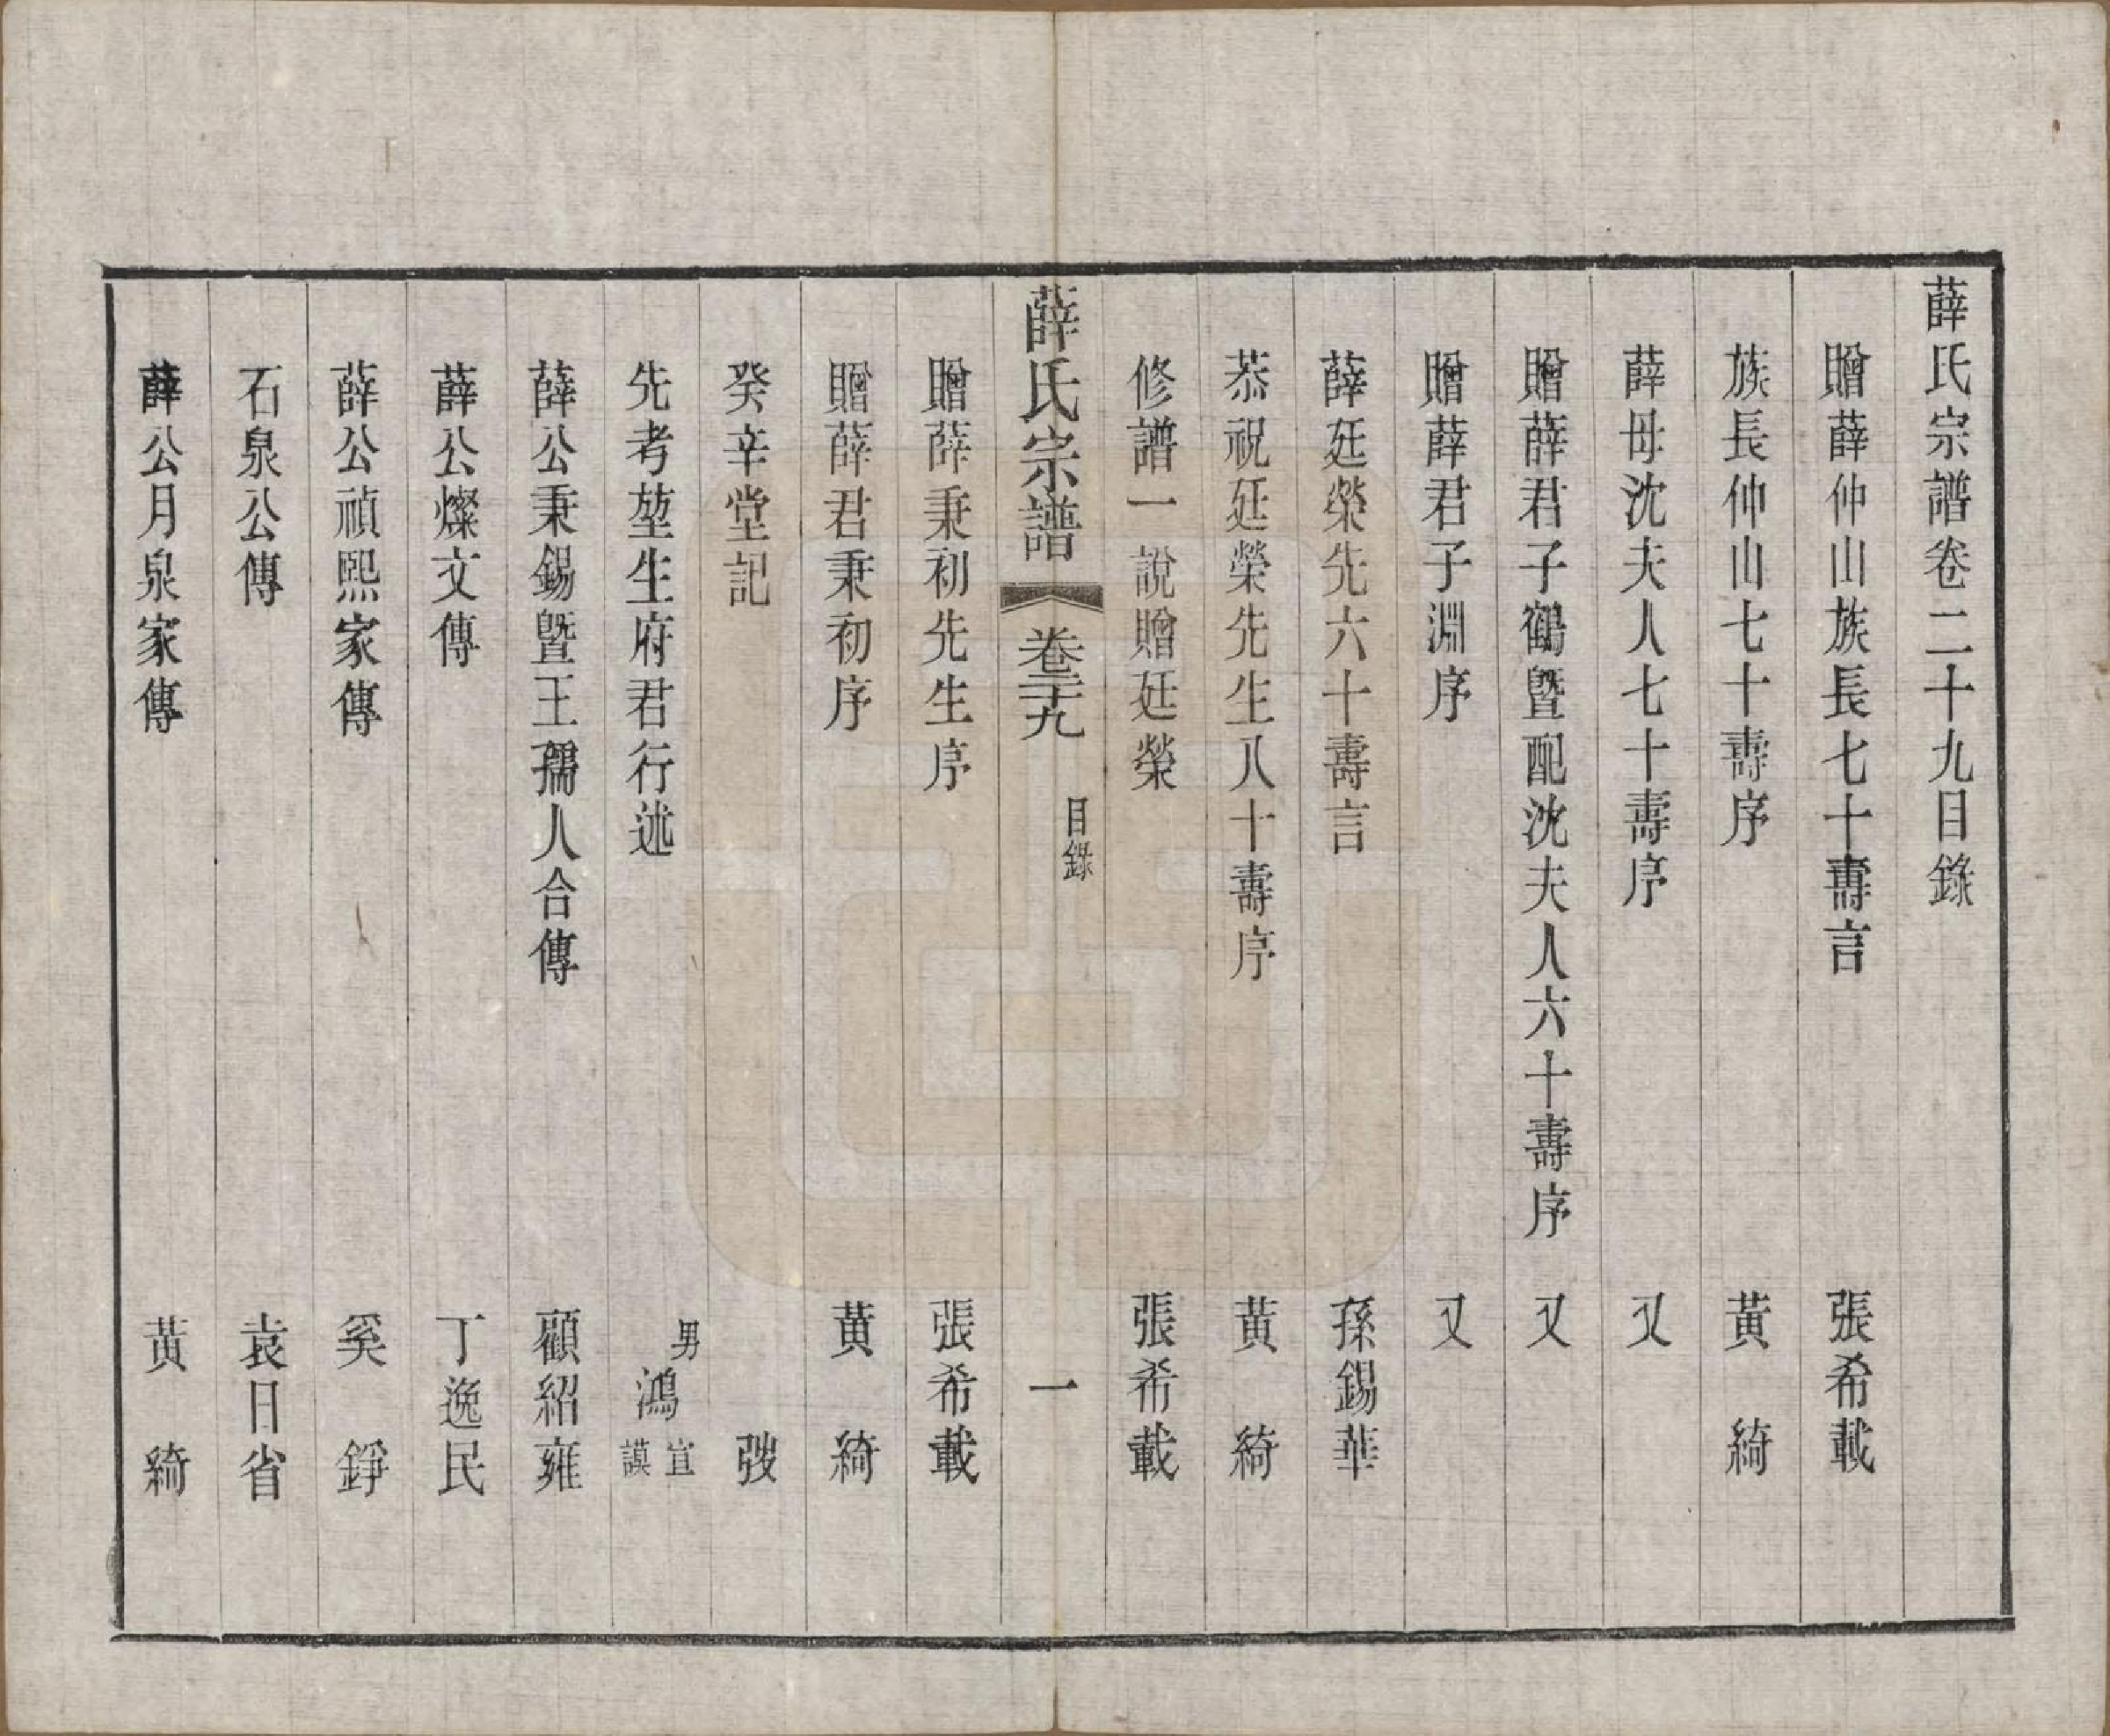 薛氏宗譜卷二十九目錄
贈薛仲山族長七十壽言 張希載
族長仲山七十壽序 黃綺
薛母沈夫人七十壽序 又
贈薛君子鶴暨配沈夫人六十壽序 又
贈薛君子淵序 又
薛廷榮先六十壽言 孫錫華
恭祝廷榮先生八十壽序 黃綺
修譜一說贈廷榮 張希載
薛氏宗譜 卷二十九 目錄 一
贈薛秉初先生序 張希載
贈薛君秉初序 黃綺
癸辛堂記 弢
先考堃生府君行述 男鴻宣謨
薛公秉錫暨王孺人合傳 顧紹雍
薛公燦文傳 丁逸民
薛公禎熙家傳 奚錚
石泉公傳 袁日省
薛公月泉家傳 黃綺